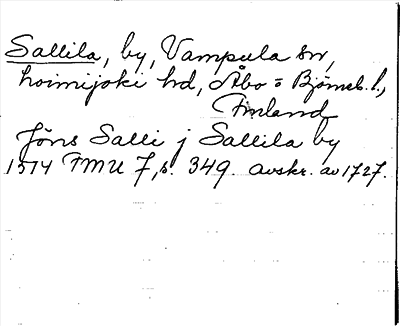 Sallila, by, Vampula sn,
Loimijoki hd, Åbo = Björneb. l.,
Finland
Jöns Salli j Sallila by
1514 FMU 7, s. 349. avskr. av 1727.